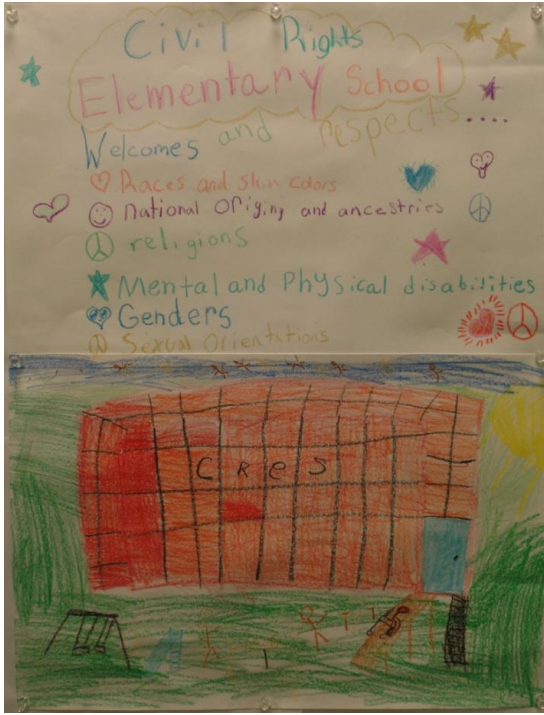 Civil Rights
Elementary School
Welcomes and respects....
Races and skin colors
national origing and ancestries
religions
Mental and Physical disabilities
Genders
Sexual Orientations
CReS